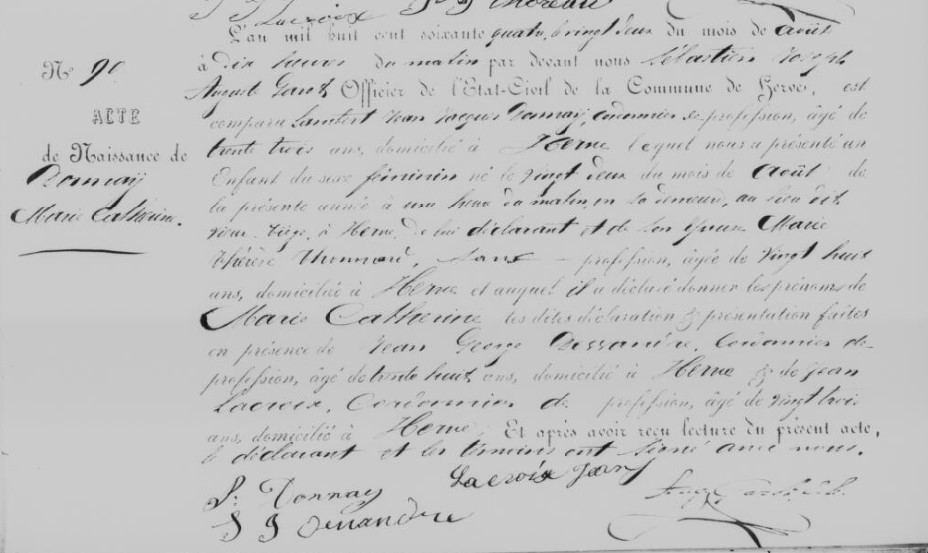 Lacroix J J Moreau
L'an mil huit cent soixante quatre, vingt deux du mois de août
à dix heures du matin par devant nous Sébastien Joseph
N° 90
Auguste Officier de l'Etat-Civil de la Commune de Herve, est
ACTE
comparu Lambert Jean Jacques Donnaÿ, cordonnier de profession, âgé de
trente trois ans, domicilié à Herve lequel nous a présenté un
de Naissance de
Donnaÿ
Enfant du sexe féminin né le vingt deux du mois de août de
la présente année à une heure du matin, en sa demeure, au lieu dit
Marie Catherine.
à Herve, de lui déclarant et de son épouse Marie
Thérèse sans – profession, âgée de vingt huit
ans, domicilié à Herve et auquel il a déclaré donner les prénoms de
Marie Catherine les dites déclaration & présentation faites
en présence de Jean George Dessandre, Cordonnier de
profession, âgé de trente huit ans, domicilié à Herve & de Jean
Lacroix, Cordonnier de profession, âgé de vingt trois
ans, domicilié à Herve, Et après avoir reçu lecture du présent acte,
le déclarant et les témoins ont signé avec nous.
L: Donnay Lacroix Jean
J J Dessandre